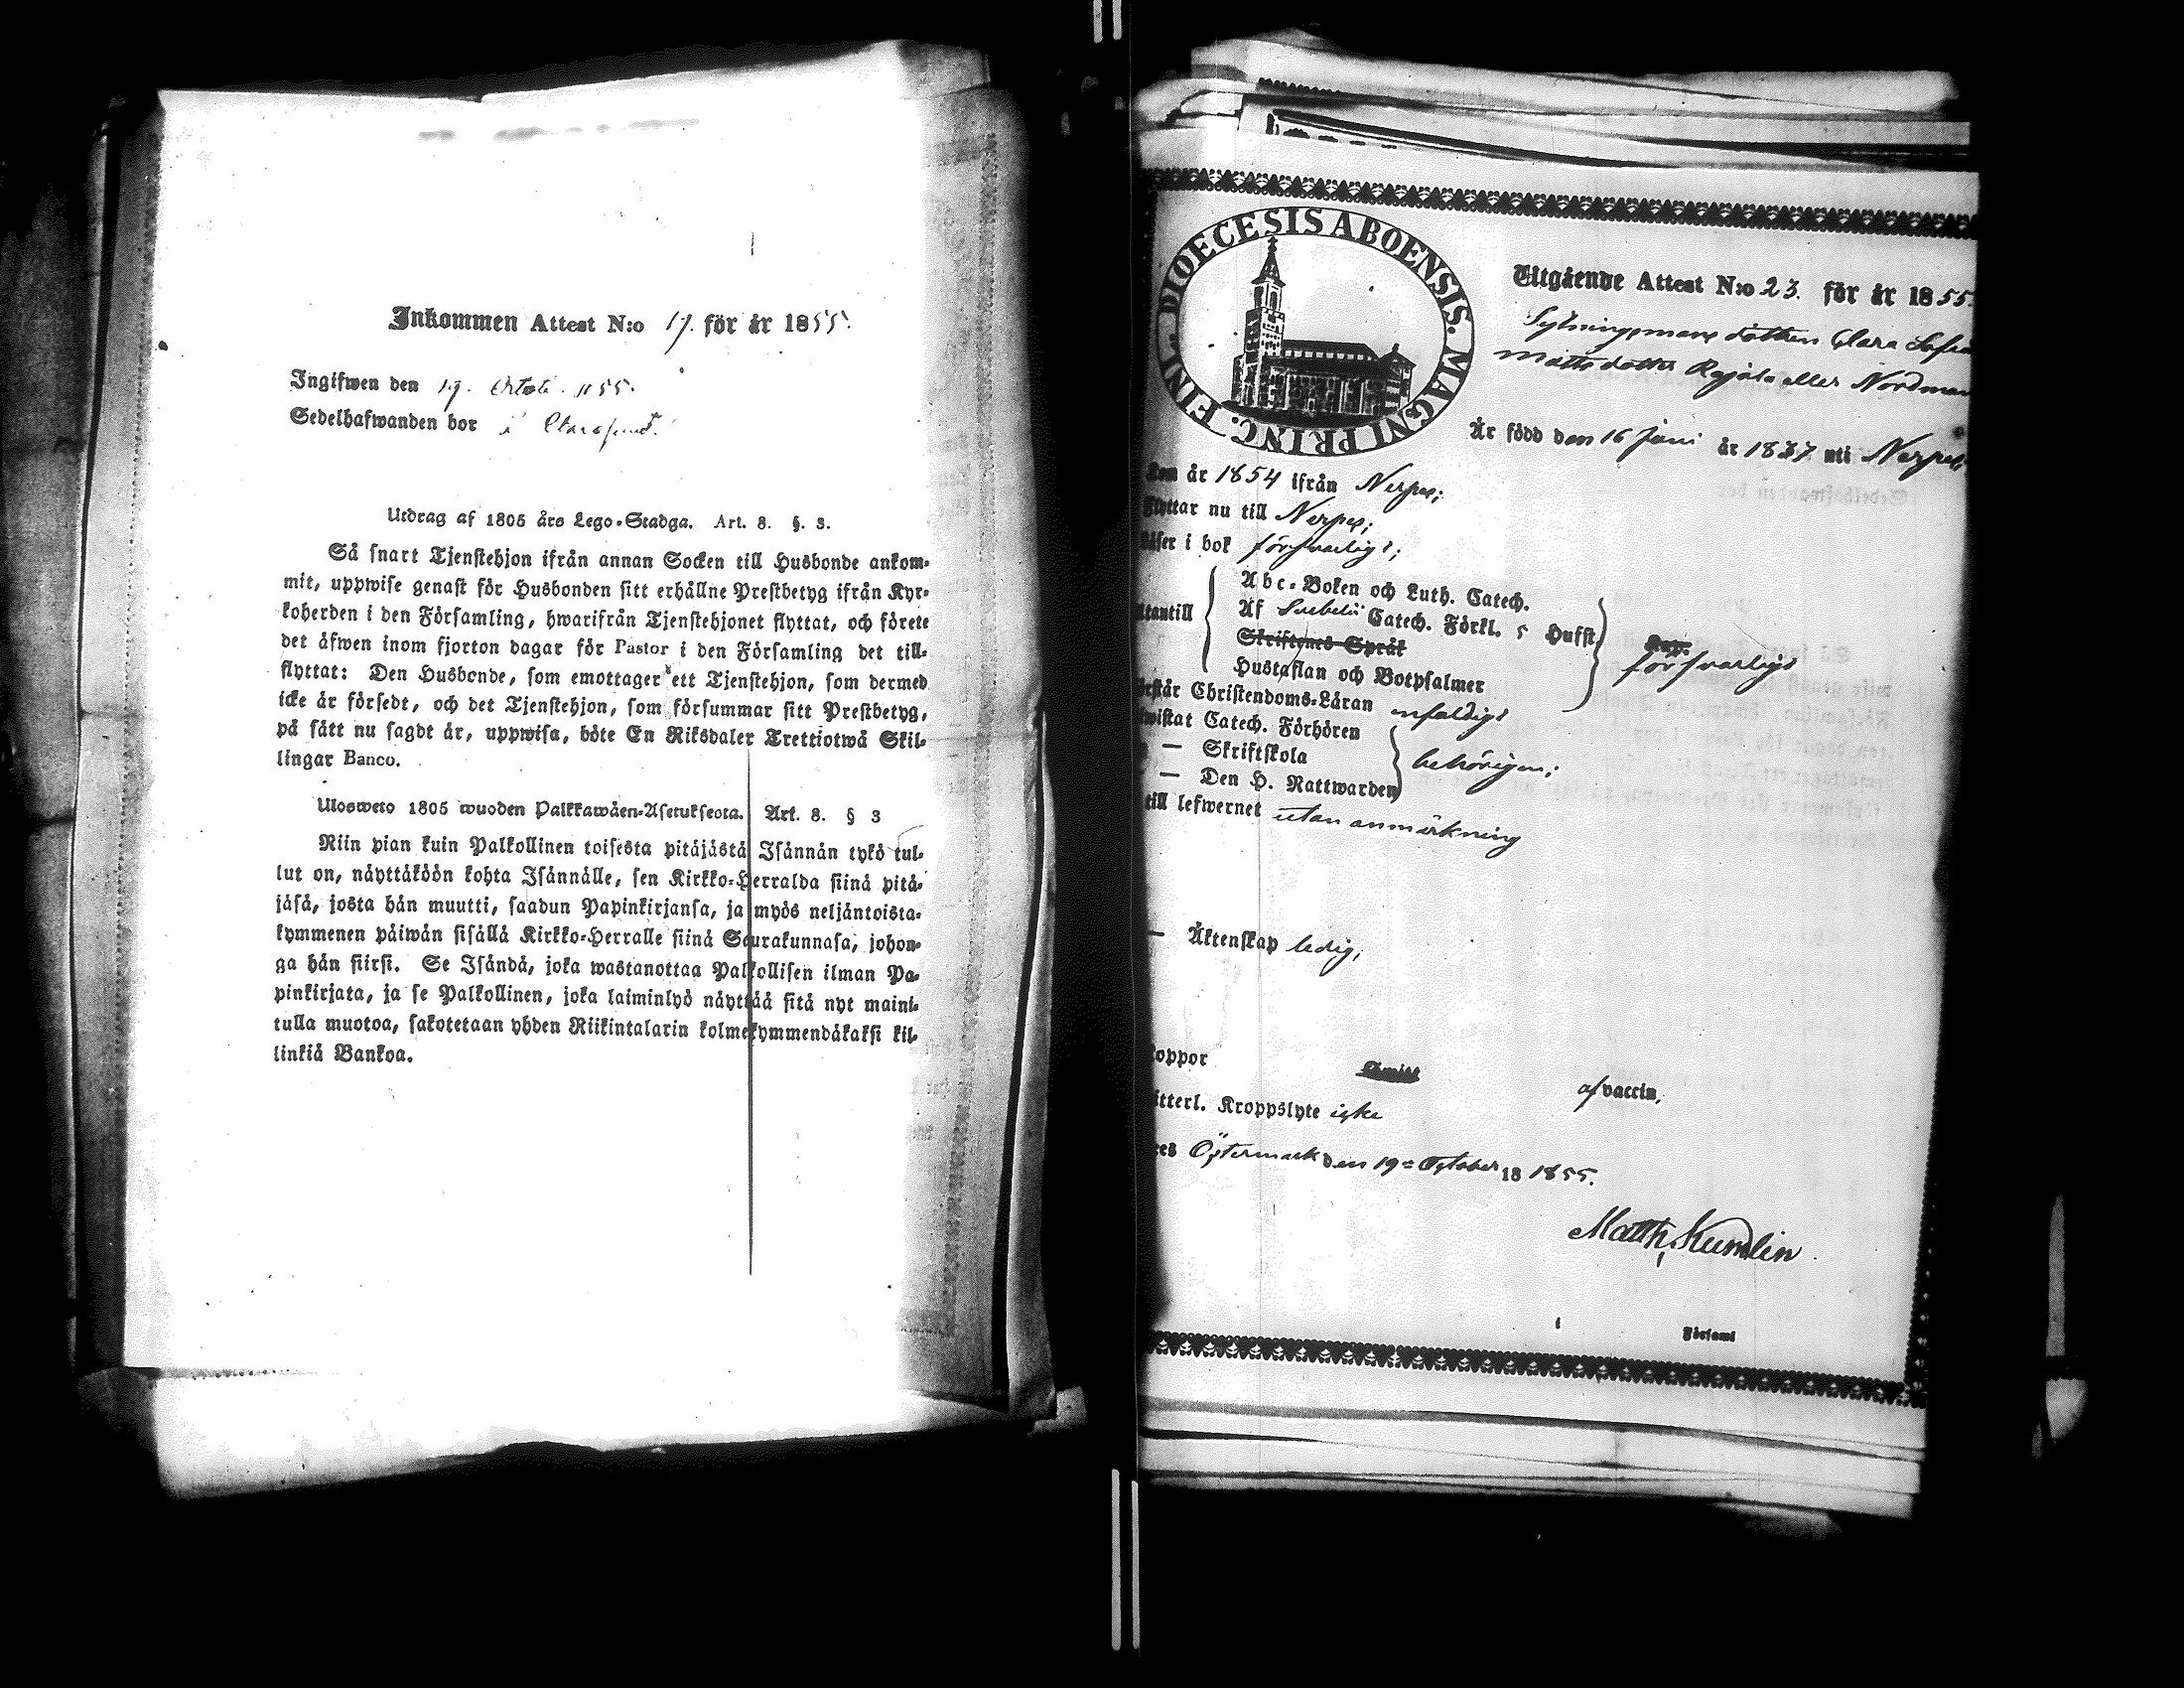 Inkommen Attest N:o 17. för år 1855.
Ingifwen den 19. Octob. 1855.
Sedelhafwanden bor i
Utdrag af 1805 års Lego-Stadga. Art. 8. §. 3.
Så snart Tjenstehjon ifrån annan Socken till Husbonde ankom-
mit, uppwise genast för Husbonden sitt erhållne Prestbetyg ifrån Kyr-
koherden i den Församling, hwarifrån Tjenstehjonet flyttat, och förete
det äfwen inom fjorton dagar för Pastor i den Församling det till-
flyttat: Den Husbonde, som emottager ett Tjenstehjon, som dermed
icke är försedt, och det Tjenstehjon, som försummar sitt Prestbetyg,
på sätt nu sagdt är, uppwisa, böte En Riksdaler Trettiotwå Skil-
lingar Banco.
Ulosweto 1805 wuoden Palkkawäen-Asetuksesta. Art. 8. § 3
Niin pian kuin Palkollinen toisesta pitäjästä Isännän tykö tul-
lut on, näyttäköön kohta Isännälle, sen Kirkko-Herralda siinä pitä-
jäsä, josta hän muutti, saadun Papinkirjansa, ja myös neljäntoista-
kymmenen päiwän sisällä Kirkko-Herralle siinä Seurakunnasa, johon-
ga hän siirsi. Se Isändä, joka wastanottaa Palkollisen ilman Pa-
pinkirjata, ja se Palkollinen, joka laiminlyö näyttää sitä nyt maini-
tulla muotoa, sakotetaan yhden Riikintalarin kolmekymmendäkaksi kil-
linkiä Bankoa.
DIOECESIS ABOENSIS. MAGNI PRINC. FINL.
Utgående Attest N:o 23. för år 1855
Sytningsmans dottren Clara Sofia
Matts dotter Rajala eller Nordman
Är född den 16 Juni år 1837 uti Nerpes
Kom år 1854 ifrån Nerpes;
Flyttar nu till Nerpes;
Läser i bok försvarligt;
Abc-Boken och Luth. Catech.
Utantill Af Svebelii Catech. Förkl. 5 Hufst
Skriftenes Språk försvarligt
Hustaflan och Botpsalmer
rstår Christendoms-Läran enfaldigt
wistat Catech. Förhören
— Skriftskola behörigen;
— Den H. Nattwarden
till lefwernet utan anmärkning
— Äktenskap ledig,
koppor af vaccin,
itterl. Kroppslyte icke
es Östermark den 19 October 18 1855.
Matth. Kumlin.
i Församl